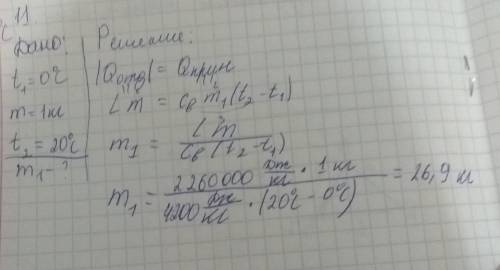 11
Дано:
Решение:
t₁=0℃
m=1кг
t₂=20℃
m₁-?
|Qотд|=Qпрун
Lm = cв m₁(t₂-t₁)
m₁ = Lm / cв(t₂-t₁)
m₁ = 2260000 дж/кг · 1 кг / 4200 дж/кг · (20℃ - 0℃) = 26,9 кг